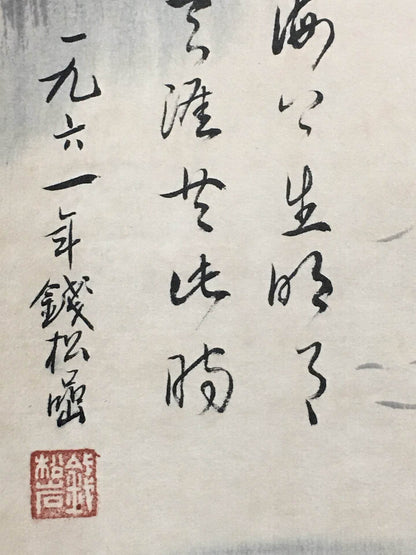 海上生明月
天涯共此時
一九六一年錢松嵒
錢松嵒